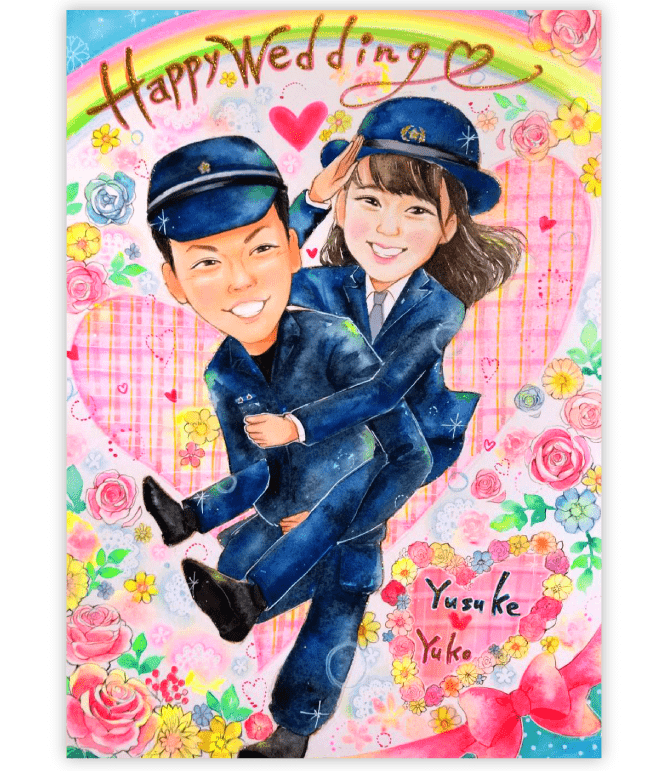 Happy Wedding
Yusuke
Yuko